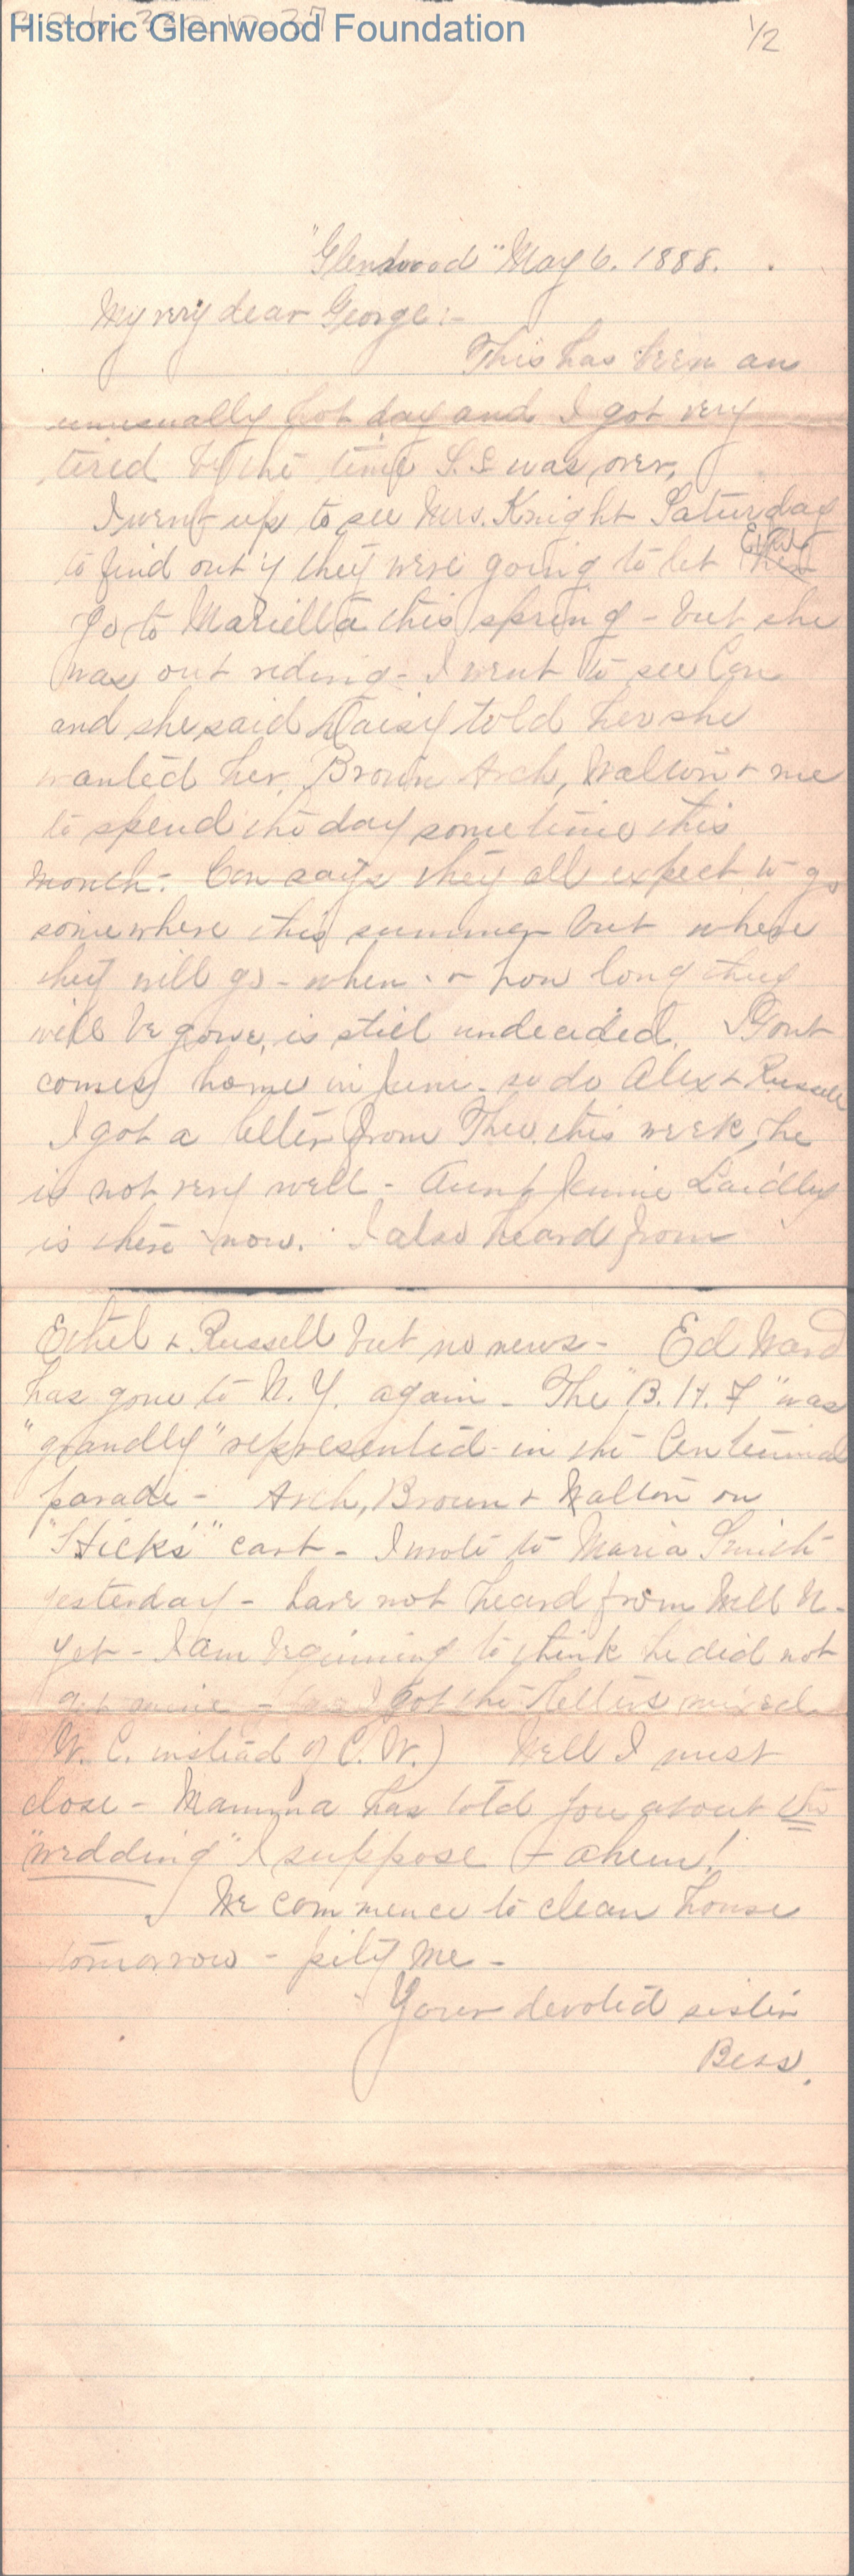 Historic Glenwood Foundation
1/2
"Glenwood" May 6. 1888.
My very dear George:-
This has been an
unusually hot day and I got very
tired by the time S.S was over,
I went up to see Mrs. Knight Saturday
to find out if they were going to let Ethel
go to Marietta this spring - but she
was out riding - I went to see Con
and she said Daisy told her she
wanted her, Brown Arch, Walton + me
to spend the day sometime this
month - Con says they all expect to go
somewhere this summer but where
they will go - when - + how long they
will be gone, is still undecided.
comes home in June - so do Alex + Russell
I got a letter from Theo. this week, he
is not very well - Aunt Jennie Laidley
is there now. I also heard from
Ethel + Russell but no news - Ed Ward
has gone to N.Y. again - The "B. H. F" was
"grandly" represented in the Centennial
parade - Arch, Brown + Walton on
"Hicks'" cart - I wrote to Maria Smith
yesterday - have not heard from Will N -
yet - I am beginning to think he did not
get mine - I got the letters mixed
W. C. instead of C. W.) Well I must
close - Mamma has told you about the
"wedding" I suppose - ahem!
We commence to clean house
tomorrow - pity me -
Your devoted sister
Bess.